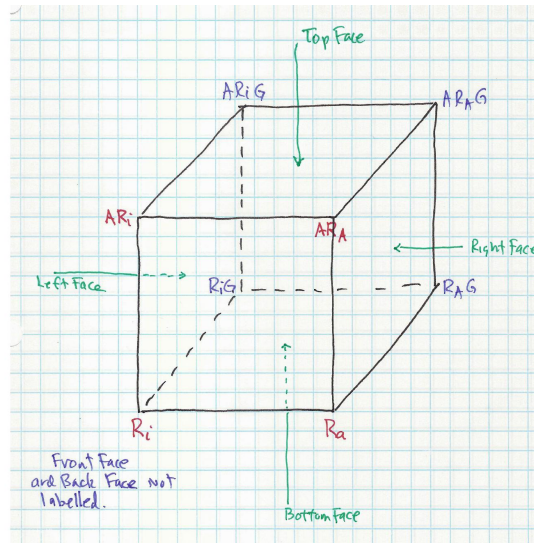 Top Face
ARiG
ARAG
ARi
ARA
Right Face
Left Face
RiG
RAG
Ri
Ra
Front Face
and Back Face Not
labelled.
Bottom Face